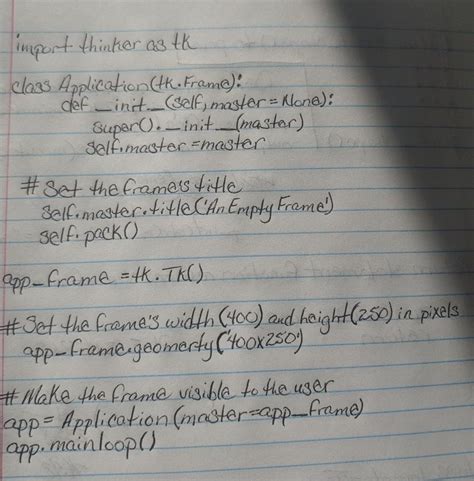 import thinker as tk
class Application(tk.Frame):
def __init__(self, master=None):
super().__init__(master)
self.master=master
# Set the frame's title
self.master.title('An Empty Frame')
self.pack()
app_frame = tk.Tk()
# Set the frame's width (400) and height (250) in pixels
app_frame.geomerty('400x250')
# Make the frame visible to the user
app = Application(master=app_frame)
app.mainloop()